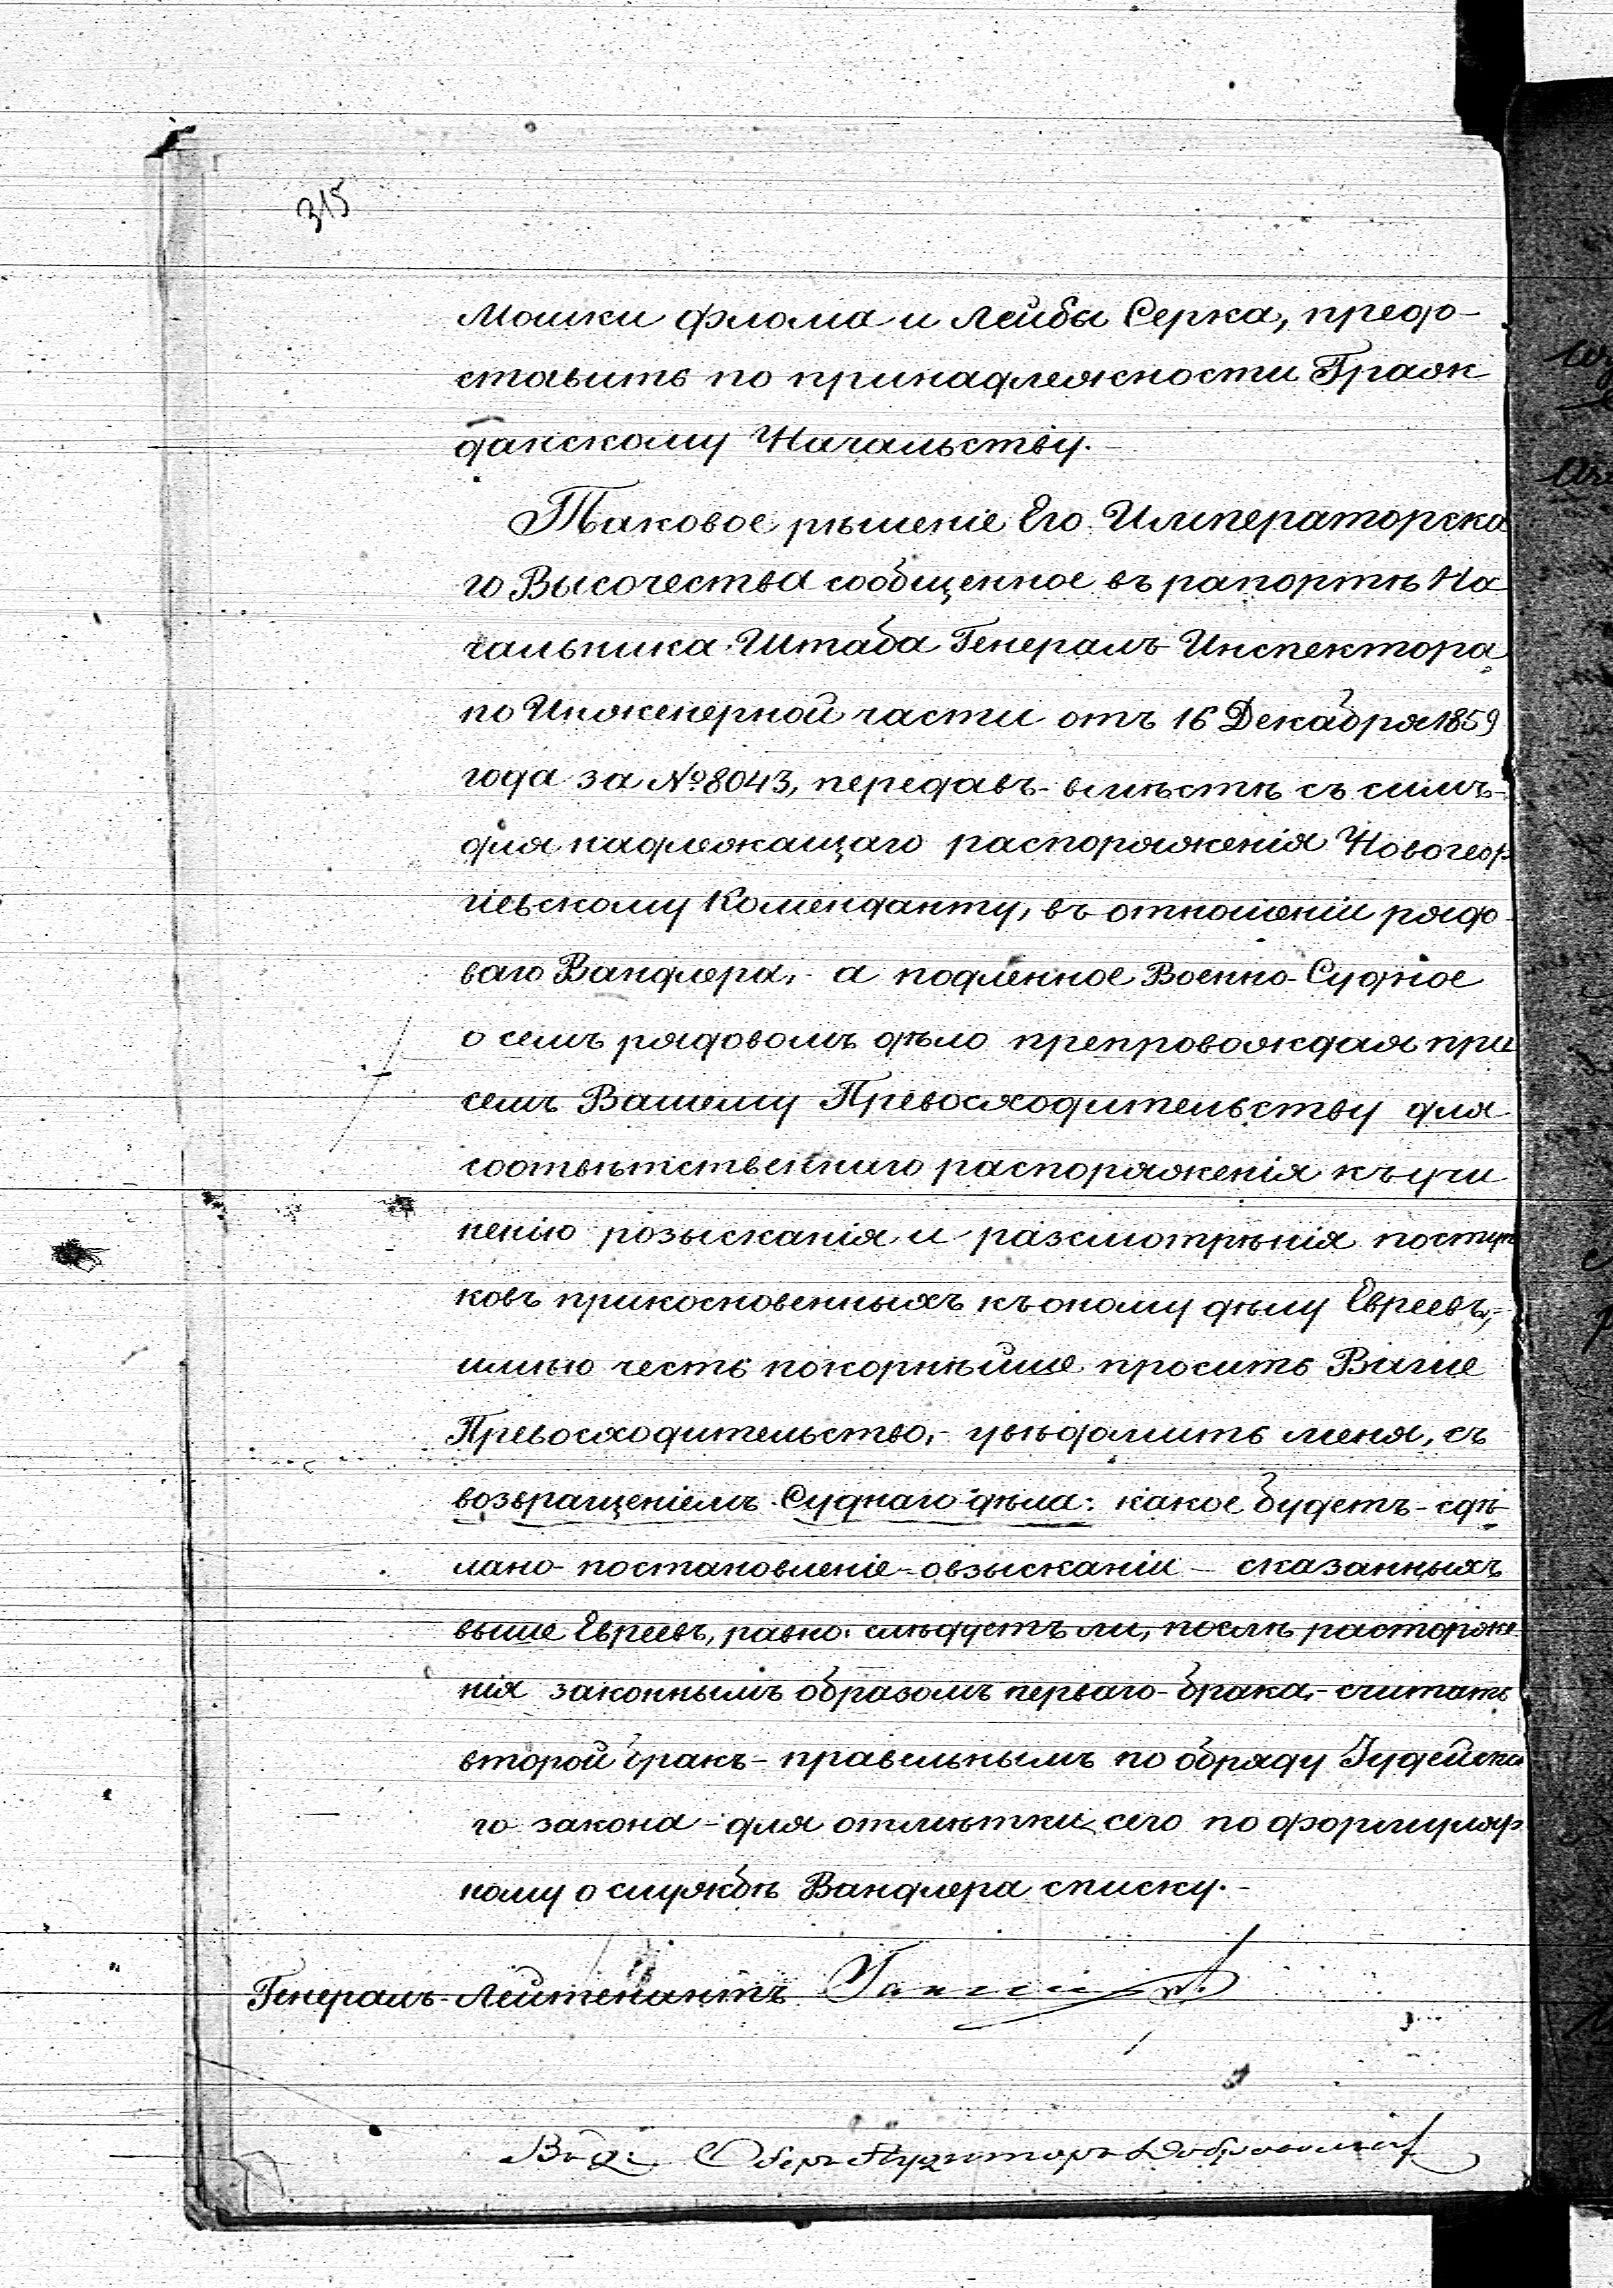 315
Мошки Флома и Лейбы Серка, предо-
ставить по принадлежности Граж
данскому Начальству.-
Таковое рѣшеніе Его Императорска
го Высочества сообщенное въ рапортѣ На
чальника Штаба Генералъ Инспектора
по Инженерной части отъ 16 Декабря 1859
года за № 8043, передавъ- вмѣстѣ съ симъ-
для надлежащаго распоряженія Новогеор
гіевскому Коменданту, въ отношеніи рядо-
ваго Вандлера,- а подленное Военно-Судное
о семъ рядовомъ дѣло препровождая при
семъ Вашему Превосходительству для
соотвѣтственнаго распоряженія къ учи
ненію розысканія и разсмотрѣнія поступ
ковъ прикосновенныхъ къ оному дѣлу Евреевъ,-
имѣю честь покорнѣйше просить Ваше
Превосходительство,- увѣдомить меня, съ
возвращеніемъ Суднаго дѣла: какое будетъ- сдѣ
лано- постановленіе- о взысканіи - сказанныхъ
выше Евреевъ, равно: слѣдуетъ ли, послѣ расторже
нія законнымъ образомъ перваго- брака,- считать
второй бракъ- правельнымъ по обряду Іудейска
го закона - для отмѣтки сего по формуляр
ному о службѣ Вандлера списку.-
Генералъ-Лейтенантъ
Оберъ Аудиторъ